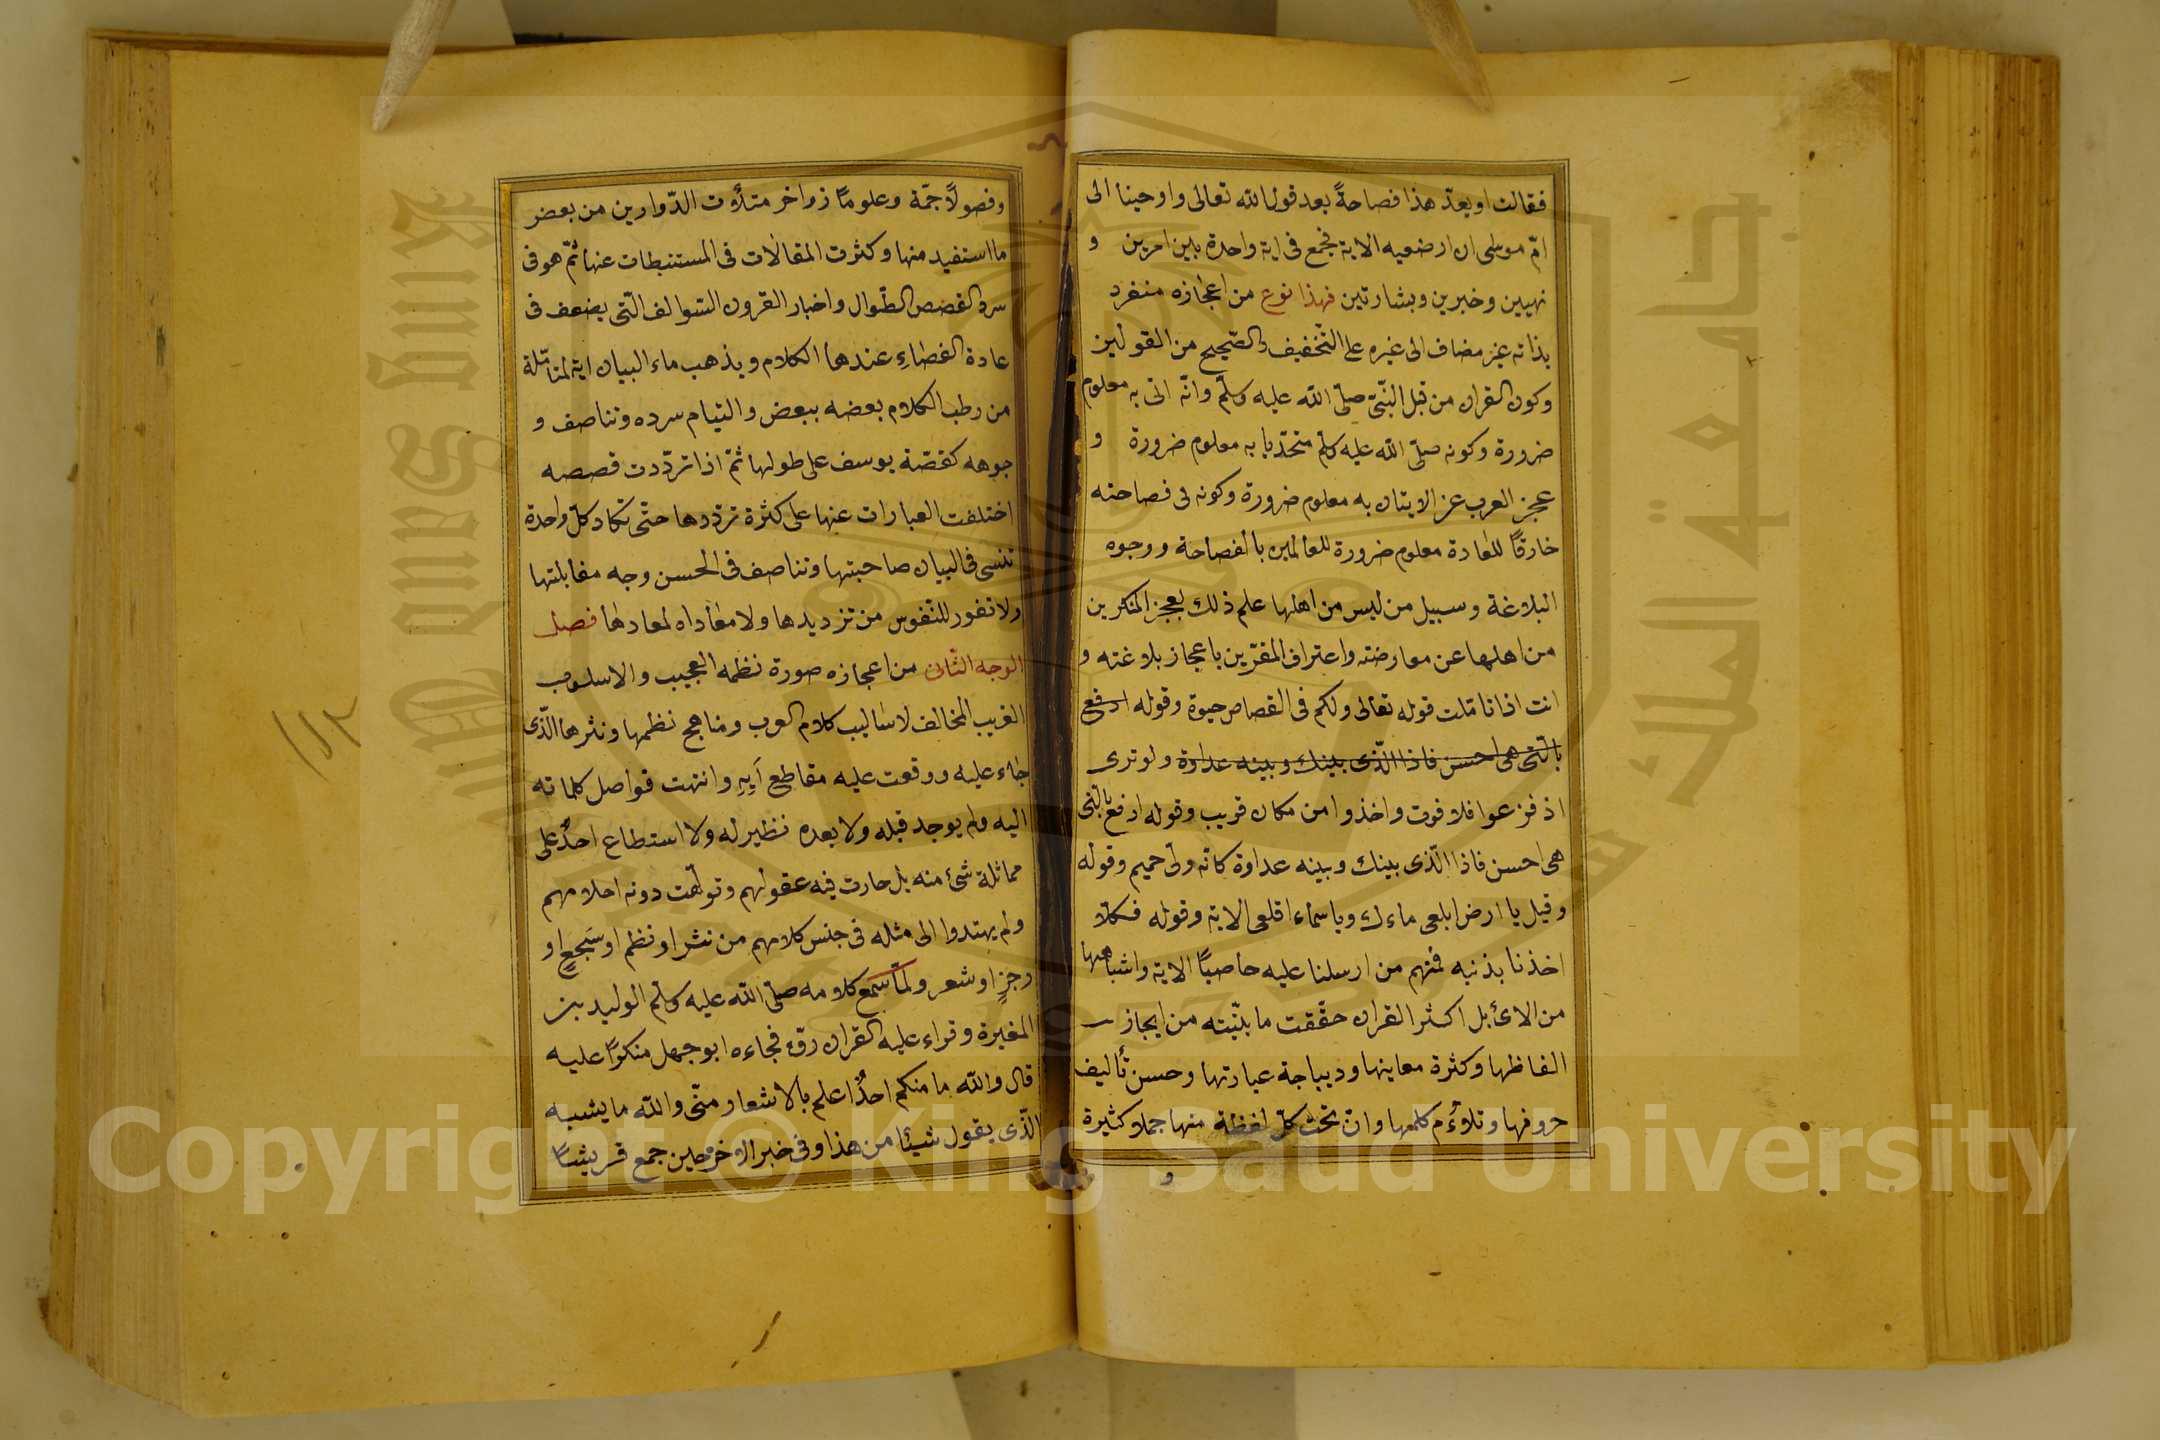 فقالت او يعدّ هذا فصاحةً بعد قول الله تعالى واوحينا الى
امّ موسى ان ارضعيه الاية فجمع فى اية واحدة بين امرين و
نهيين وخبرين وبشارتين فهذا نوع من اعجازه منفرد
بذاته غير مضاف الى غيره على التّخفيف والصّحيح من القولين
وكون القران من قبل النّبىّ صلّى الله عليه وسلّم وانّه اتى به معلوم
ضرورة وكونه صلّى الله عليه وسلّم متحدّيا به معلوم ضرورة و
عجز العرب عن الايتان به معلوم ضرورة وكونه فى فصاحته
خارقًا للعادة معلوم ضرورة للعالمين بالفصاحة ووجوه
البلاغة وسبيل من ليس من اهلها علم ذلك بعجز المنكرين
من اهلها عن معارضته واعتراف المقرّين باعجاز بلاغته و
انت اذا تامّلت قوله تعالى ولكم فى القصاص حيوة وقوله ادفع
بالّتى هى احسن فاذا الّذى بينك وبينه عداوة ولو ترى
اذ فزعوا فلا فوت واخذوا من مكان قريب وقوله ادفع بالّتى
هى احسن فاذا الّذى بينك وبينه عداوة كانّه ولىّ حميم وقوله
وقيل يا ارض ابلعى ماءك وياسماء اقلعى الاية وقوله فكلّا
اخذنا بذنبه فمنهم من ارسلنا عليه حاصبًا الاية واشباهها
من الائ بل اكثر القران حقّقت ما بيّنته من ايجاز
الفاظها وكثرة معاينها وديباجة عبارتها وحسن تأليف
حروفها وتلاؤم كلمها وانّ تحت كلّ لفظة منها جملا كثيرة
و
وفصولًا جمّة وعلومًا زواخر متلأت الدّوارين من بعض
ما استفيد منها وكثرت المقالات فى المستنبطات عنها ثمّ هو فى
سرد القصص الطّوال واخبار القرون السّوالف الّتى يضعف فى
عادة الفصاء عندها الكلام ويذهب ماء البيان اية لمتأمّلة
من ربط الكلام بعضه ببعض والتيام سرده وتناصف و
جوهه كقصّة يوسف على طولها ثمّ اذا تردّدت قصصه
اختلفت العبارات عنها على كثرة تردّدها حتّى تكاد كلّ واحدة
تنسى فى البيان صاحبتها وتناصف فى الحسن وجه مقابلتها
ولا نفور للنّفوس من ترديدها ولا معاداه لمعادها فصل
الوجه الثّانى من اعجازه صورة نظمه العجيب والاسلوب
الغريب المخالف لاساليب كلام العرب ومناهج نظمها ونثرها الّذى
جاء عليه ووقعت عليه مقاطع آيِهِ وانتهت فواصل كلماته
اليه ولم يوجد قبله ولا بعده نظير له ولا استطاع احدٌ على
مماثلة شئ منه بل حارت فيه عقولهم وتولّهت دونه احلامهم
ولم يهتدوا الى مثله فى جنس كلامهم من نثر او نظم او سَجعٍ او
رجزٍ او شعر ولمّا سمع كلامه صلّى الله عليه وسلّم الوليد بن
المغيرة وقراء عليه القران رقّ فجاءه ابو جهل منكرًا عليه
قال والله ما منكم احدٌ اعلم بالاشعار منّى والله ما يشبه
الّذى يقول شيئا من هذا وفى خبر الاخر حين جمع قريشًا
جامعة الملك سعود
King Saud University
Copyright © King Saud University